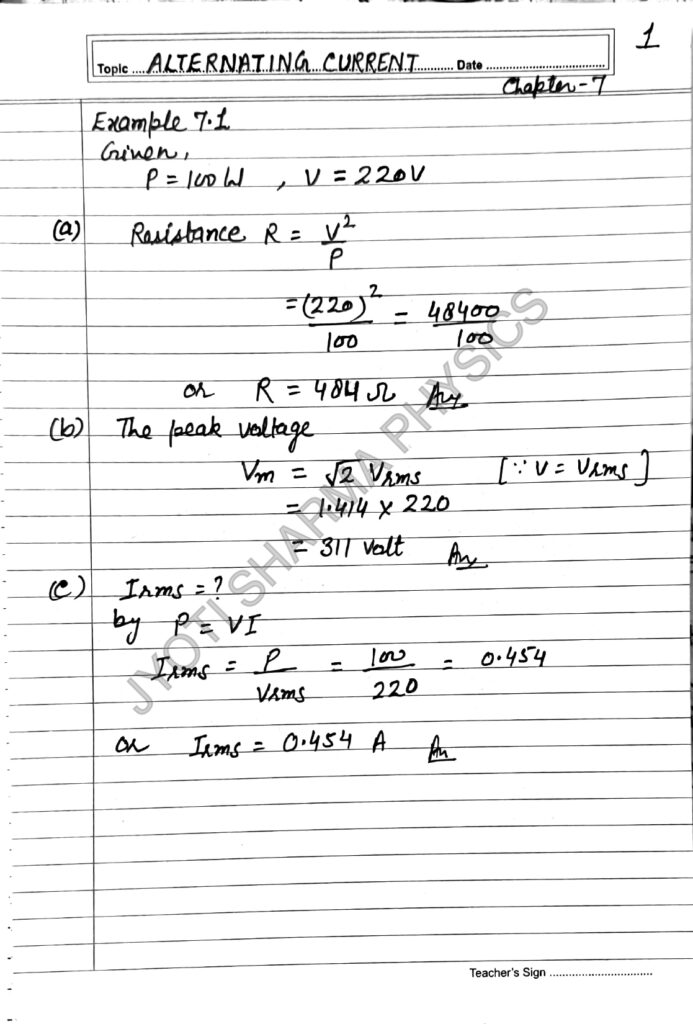 1
Topic ....ALTERNATING CURRENT........... Date ....................................
Chapter-7
Example 7.1
Given,
P = 100 W , V = 220V
(a) Resistance R = V²/P
= (220)²/100 = 48400/100
or R = 484 Ω Ans
(b) The peak voltage
Vm = √2 Vrms [∵ V = Vrms]
= 1.414 × 220
= 311 volt Ans
(c) Irms = ?
by P = VI
Irms = P/Vrms = 100/220 = 0.454
or Irms = 0.454 A Ans
JYOTI SHARMA PHYSICS
Teacher's Sign ................................